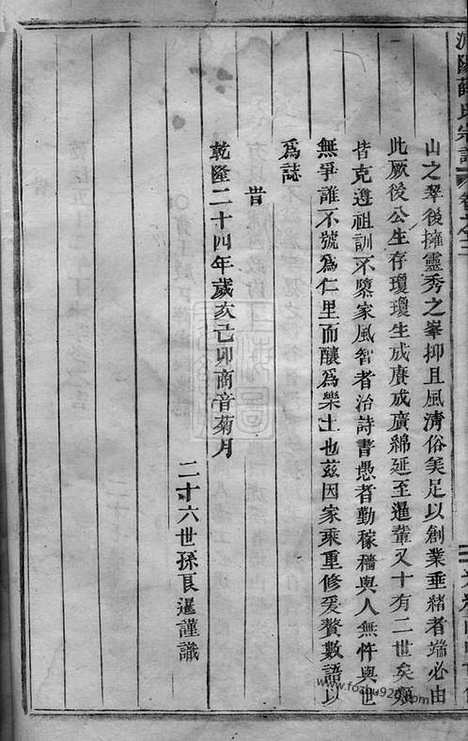 薛氏宗譜
山之翠後擁靈秀之峯抑且風清俗美足以創業垂緒者端必由
此厥後公生存瓊瓊生成賡成廣綿延至暹輩又十有二世矣類
皆克遵祖訓不墜家風智者治詩書愚者勤稼穡與人無忤與世
無爭誰不號為仁里而釀為樂土也茲因家乘重修爰贅數語以
為誌
昔
乾隆二十四年歲亥己卯商音菊月
二十六世孫良暹謹識